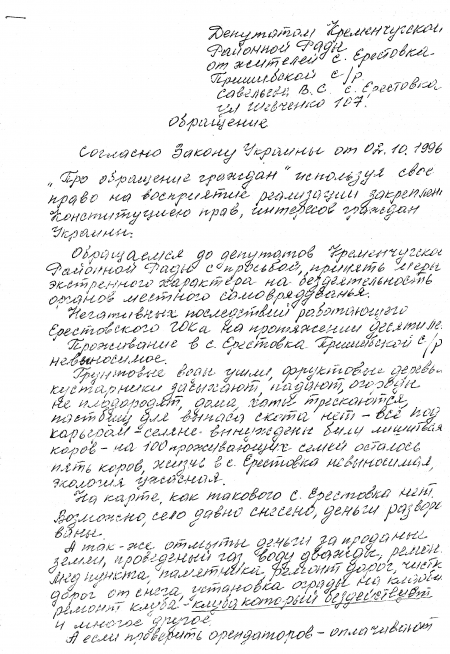 Депутатам Кременчугской
Районной Рады
от жителей с. Ерестовка
Пришибской с/р
Савельева В.С. с. Ерестовка
ул Шевченко 107.
Обращение
Согласно Закону Украины от 02.10.1996
„Про обращение граждан" используя свое
право на восприятие реализации закреплен
Конституциею прав, интересов граждан
Украины.
Обращаемся до депутатов Кременчугской
Районной Рады с просьбой, принять меры
экстренного характера на бездеятельность
органов местного самоврядуванья.
Негативных последствий работающего
Ерестовского ГОКа на протяжении десяти ле
Проживание в с. Ерестовка Пришибской с/р
невыносимое.
Грунтовые воды ушли, фруктовые деревья
кустарники засыхают, падают, огороды
не плодородят, дома, хаты трескаются,
пастбищ для выпаса скота нет - все под
карьером - селяне вынуждены были лишиться
коров - на 100 проживающих семей осталось
пять коров, жизнь в с. Ерестовка невыносимая,
экология ужасная.
На карте, как такового с. Ерестовка нет.
Возможно, село давно снесено, деньги разворо
ваны.
А так-же отмыты деньги за проданы
земли, проведеный газ, воду дважды, ремон
медпункта, памятника, ремонт дорог, чистк
дорог от снега, установка ограды на кладби
ремонт клуба - клуба который бездействует
и многое другое.
А если проверить орендаторов - оплачивают